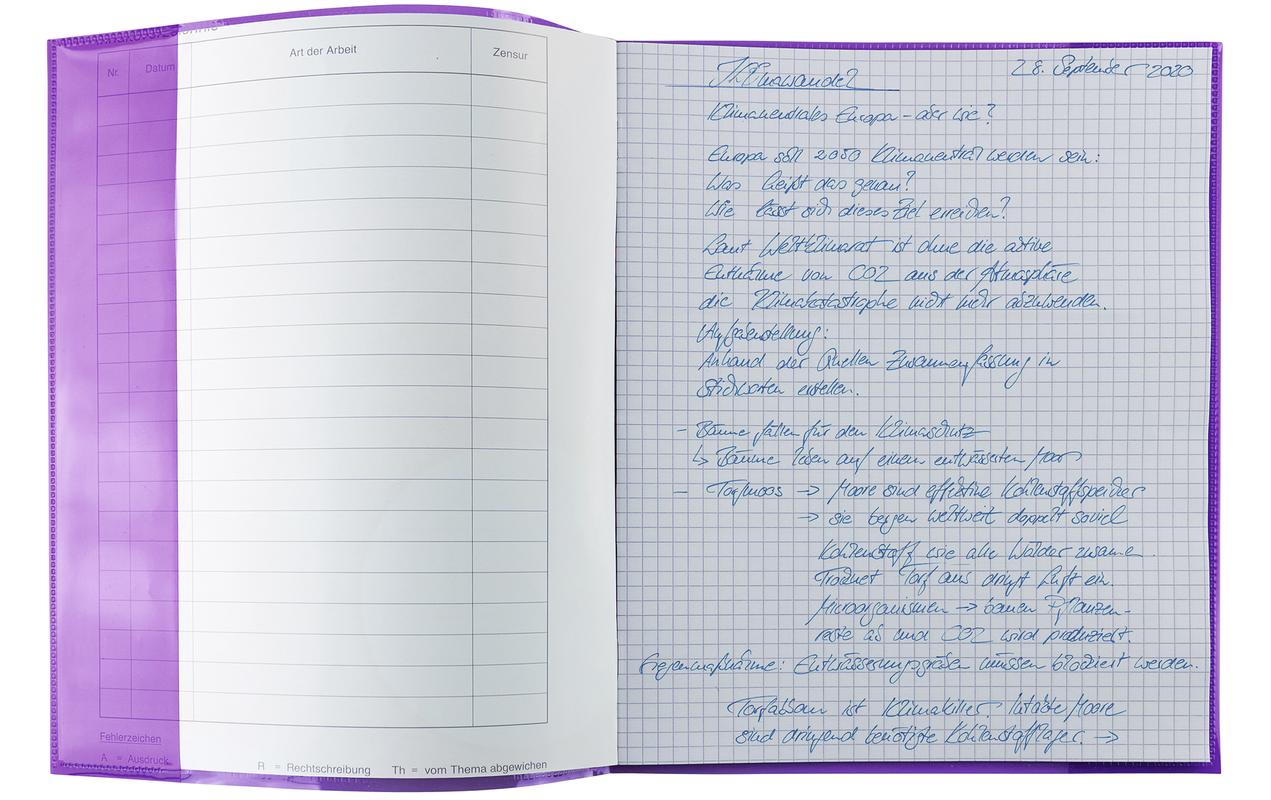 Nr.
Datum
Art der Arbeit
Zensur
Fehlerzeichen
A = Ausdruck
R = Rechtschreibung Th = vom Thema abgewichen
28. September 2020
Klimawandel
Klimaneutrales Europa - aber wie?
Europa soll 2050 Klimaneutral werden sein:
Was heißt das genau?
Wie lässt sich dieses Ziel erreichen?
Laut Weltklimarat ist ohne die aktive
Entnahme von CO2 aus der Atmosphäre
die Klimakatastrophe nicht mehr abzuwenden.
Aufgabenstellung:
Anhand der Quellen Zusammenfassung in
Stichworten erstellen.
- Bäume fällen für den Klimaschutz
↳ Bäume leben auf einem entwässerten Moor
- Torfmoos → Moore sind effektive Kohlenstoffspeicher
→ sie bergen weltweit doppelt soviel
Kohlenstoff wie alle Wälder zusammen.
Trocknet Torf aus dringt Luft ein.
Microorganismen → bauen Pflanzen-
reste ab und CO2 wird produziert.
Gegenmaßnahme: Entwässerungsgräben müssen blockiert werden.
Torfabbau ist Klimakiller. Intakte Moore
sind dringend benötigte Kohlenstofflager. →